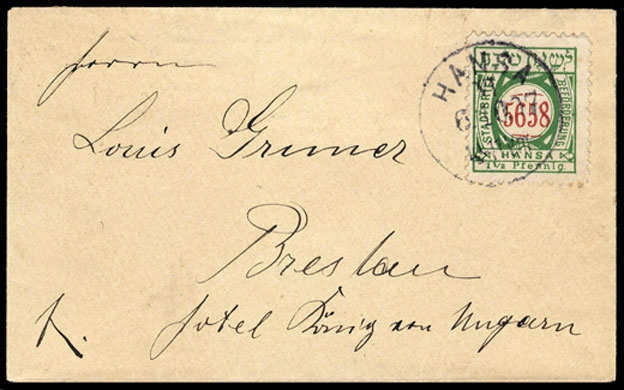 לשנה טובה
STADTBRIEF BEFÖRDERUNG
5658
HANSA
1½ Pfennig.
HANSA
Herrn
Louis Grumer
Breslau
Hotel König von Ungarn